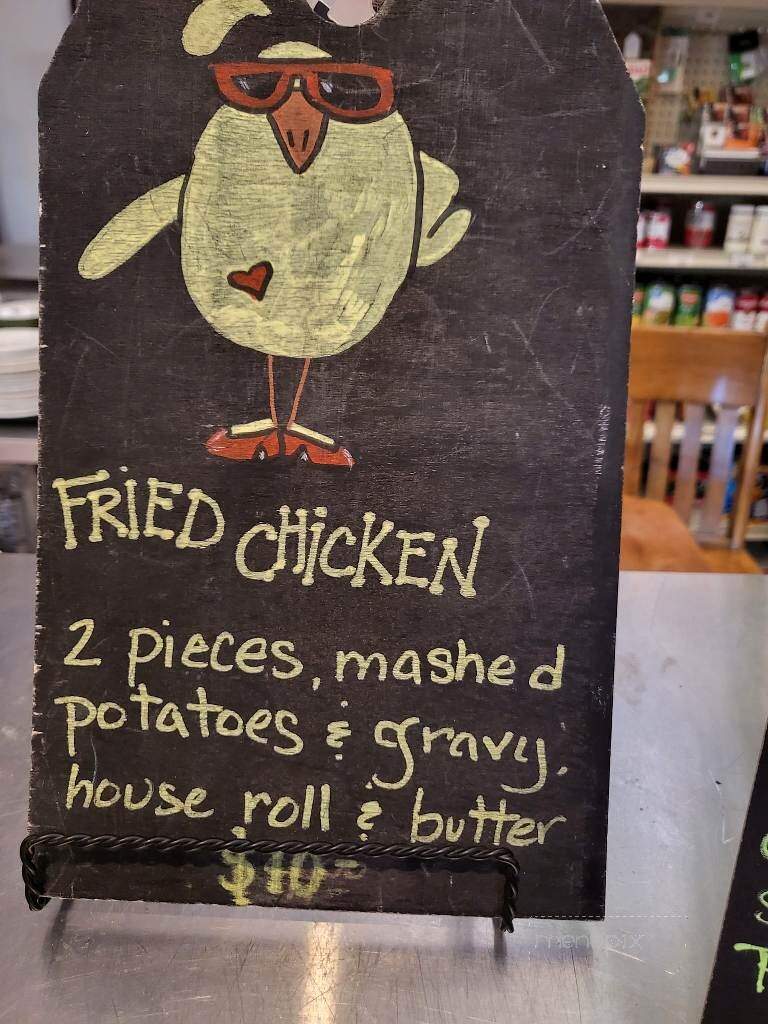 FRiED CHiCKEN
2 pieces, mashed
potatoes & gravy,
house roll & butter
$10
menupix